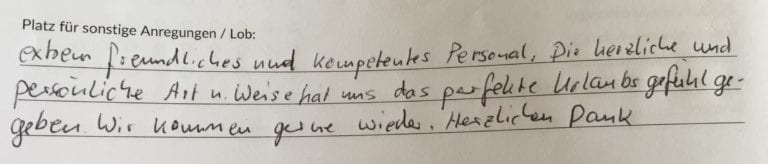 Platz für sonstige Anregungen / Lob:
extrem freundliches und kompetentes Personal. Die herzliche und
persönliche Art u. Weise hat uns das perfekte Urlaubsgefühl ge-
geben. Wir kommen gerne wieder. Herzlichen Dank